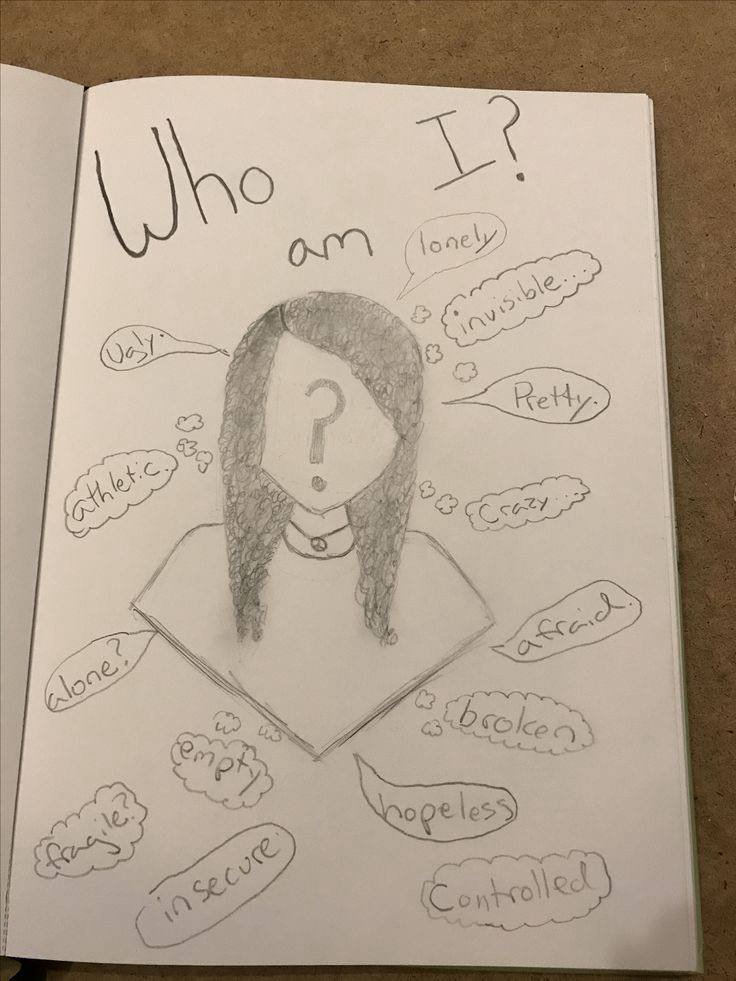 Who am I?
lonely
invisible...
Ugly.
Pretty.
athletic.
crazy...
afraid.
alone?
broken
empty
hopeless
fragile?
insecure.
Controlled
?